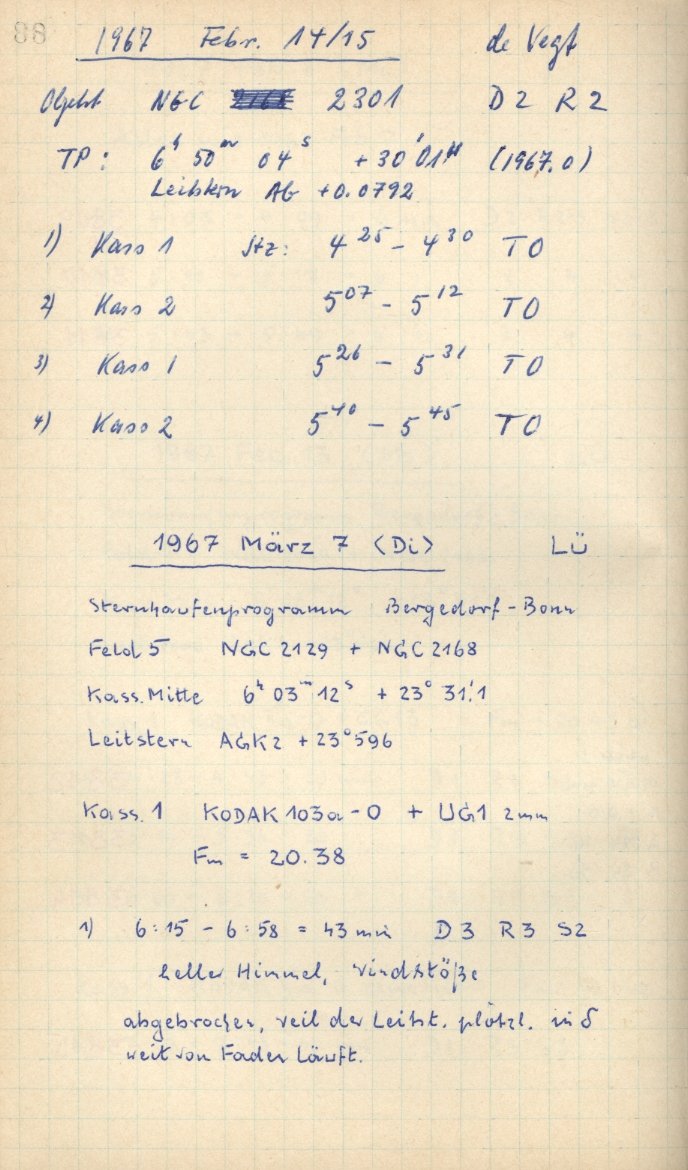 88
1967 Febr. 14/15 de Vegt
Objekt NGC 2301 D2 R2
TP: 6ʰ 50ᵐ 04ˢ +30'01" (1967.0)
Leitstern AG +0.0792
1) Kass 1 Stz: 4²⁵ – 4³⁰ TO
2) Kass 2 5⁰⁷ - 5¹² TO
3) Kass 1 5²⁶ – 5³¹ TO
4) Kass 2 5⁴⁰ – 5⁴⁵ TO
1967 März 7 (Di) LÜ
Sternhaufenprogramm Bergedorf - Bonn
Feld 5 NGC 2129 + NGC 2168
Kass. Mitte 6ʰ 03ᵐ 12ˢ + 23° 31!1
Leitstern AGK2 + 23°596
Kass. 1 KODAK 103a-O + UG1 2mm
Fm = 20.38
1) 6:15 - 6:58 = 43 min D3 R3 S2
heller Himmel, Windstöße
abgebrochen, weil der Leitst. plötzl. in δ
weit von Faden läuft.